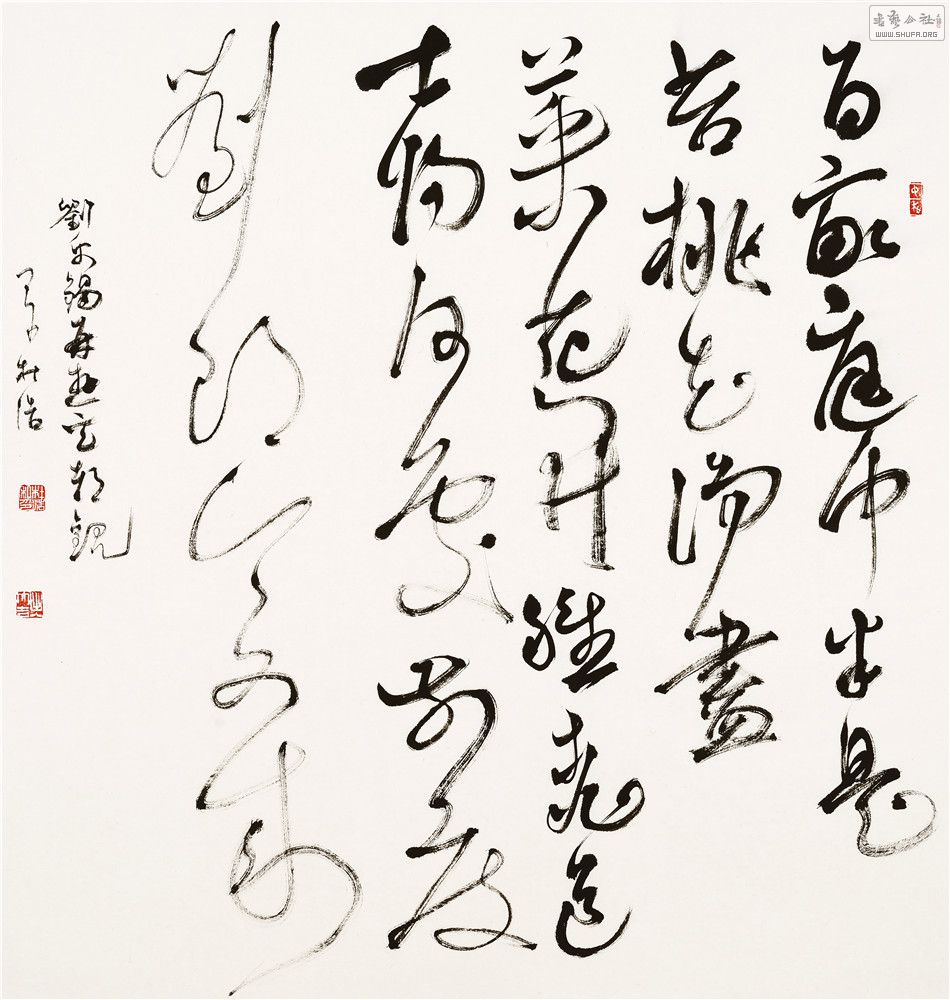 書藝公社
WWW.SHUFA.ORG
百畝庭中半是
苔桃花淨盡
菜花開種桃道
士歸何處前度
劉郎今又來
劉禹錫再遊玄都觀
杜浩